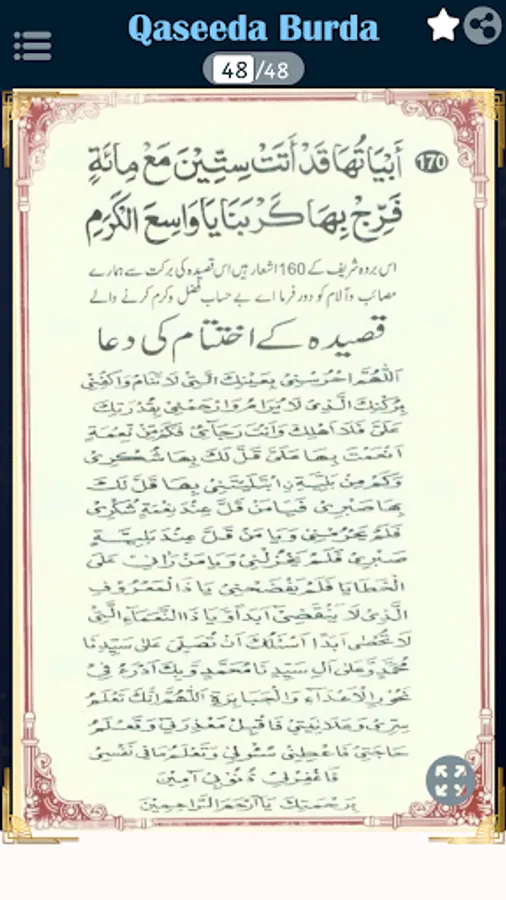 Qaseeda Burda
48/48
أَبْيَاتُهَا قَدْ أَتَتْ سِتِّيْنَ مَعْ مِائَةٍ 170
فَرِّجْ بِهَا كَرْبَنَا يَا وَاسِعَ الْكَرَمِ
اس بردہ شریف کے 160 اشعار ہیں اس قصیدہ کی برکت سے ہمارے
مصائب و آلام کو دور فرما اے بے حساب فضل و کرم کرنے والے
قصیدہ کے اختتام کی دعا
اَللّٰهُمَّ احْرُسْنِيْ بِعَيْنِكَ الَّتِيْ لَا تَنَامُ وَاكْفِنِيْ
بِرُكْنِكَ الَّذِيْ لَا يُرَامُ وَارْحَمْنِيْ بِقُدْرَتِكَ
عَلَيَّ فَلَا اَهْلِكُ وَاَنْتَ رَجَآئِيْ فَكَمْ مِّنْ نِّعْمَةٍ
اَنْعَمْتَ بِهَا عَلَيَّ قَلَّ لَكَ بِهَا شُكْرِيْ
وَكَمْ مِنْ بَلِيَّةٍ نِ ابْتَلَيْتَنِيْ بِهَا قَلَّ لَكَ
بِهَا صَبْرِيْ فَيَا مَنْ قَلَّ عِنْدَ نِعْمَةٍ شُكْرِيْ
فَلَمْ يَحْرُمْنِيْ وَيَا مَنْ قَلَّ عِنْدَ بَلِيَّةٍ
صَبْرِيْ فَلَمْ يَخْذُلْنِيْ وَيَا مَنْ رَاٰنِيْ عَلَى
الْخَطَايَا فَلَمْ يَفْضَحْنِيْ يَا ذَا الْمَعْرُوْفِ
الَّذِيْ لَا يَنْقَضِيْ اَبَدًا وَّ يَا ذَا النَّعْمَآءِ الَّتِيْ
لَا تُحْصٰى اَبَدًا اَسْئَلُكَ اَنْ تُصَلِّيَ عَلٰى سَيِّدِنَا
مُحَمَّدٍ وَّعَلٰى اٰلِ سَيِّدِنَا مُحَمَّدٍ وَّ بِكَ اَدْرَءُ فِيْ
نُحُوْرِ الْاَعْدَآءِ وَالْجَبَابِرَةِ اَللّٰهُمَّ اِنَّكَ تَعْلَمُ
سِرِّيْ وَعَلَانِيَتِيْ فَاقْبَلْ مَعْذِرَتِيْ وَتَعْلَمُ
حَاجَتِيْ فَاعْطِنِيْ سُئُوْلِيْ وَتَعْلَمُ مَا فِيْ نَفْسِيْ
فَاغْفِرْلِيْ ذُنُوْبِيْ اٰمِيْنَ
بِرَحْمَتِكَ يَا اَرْحَمَ الرَّاحِمِيْنَ